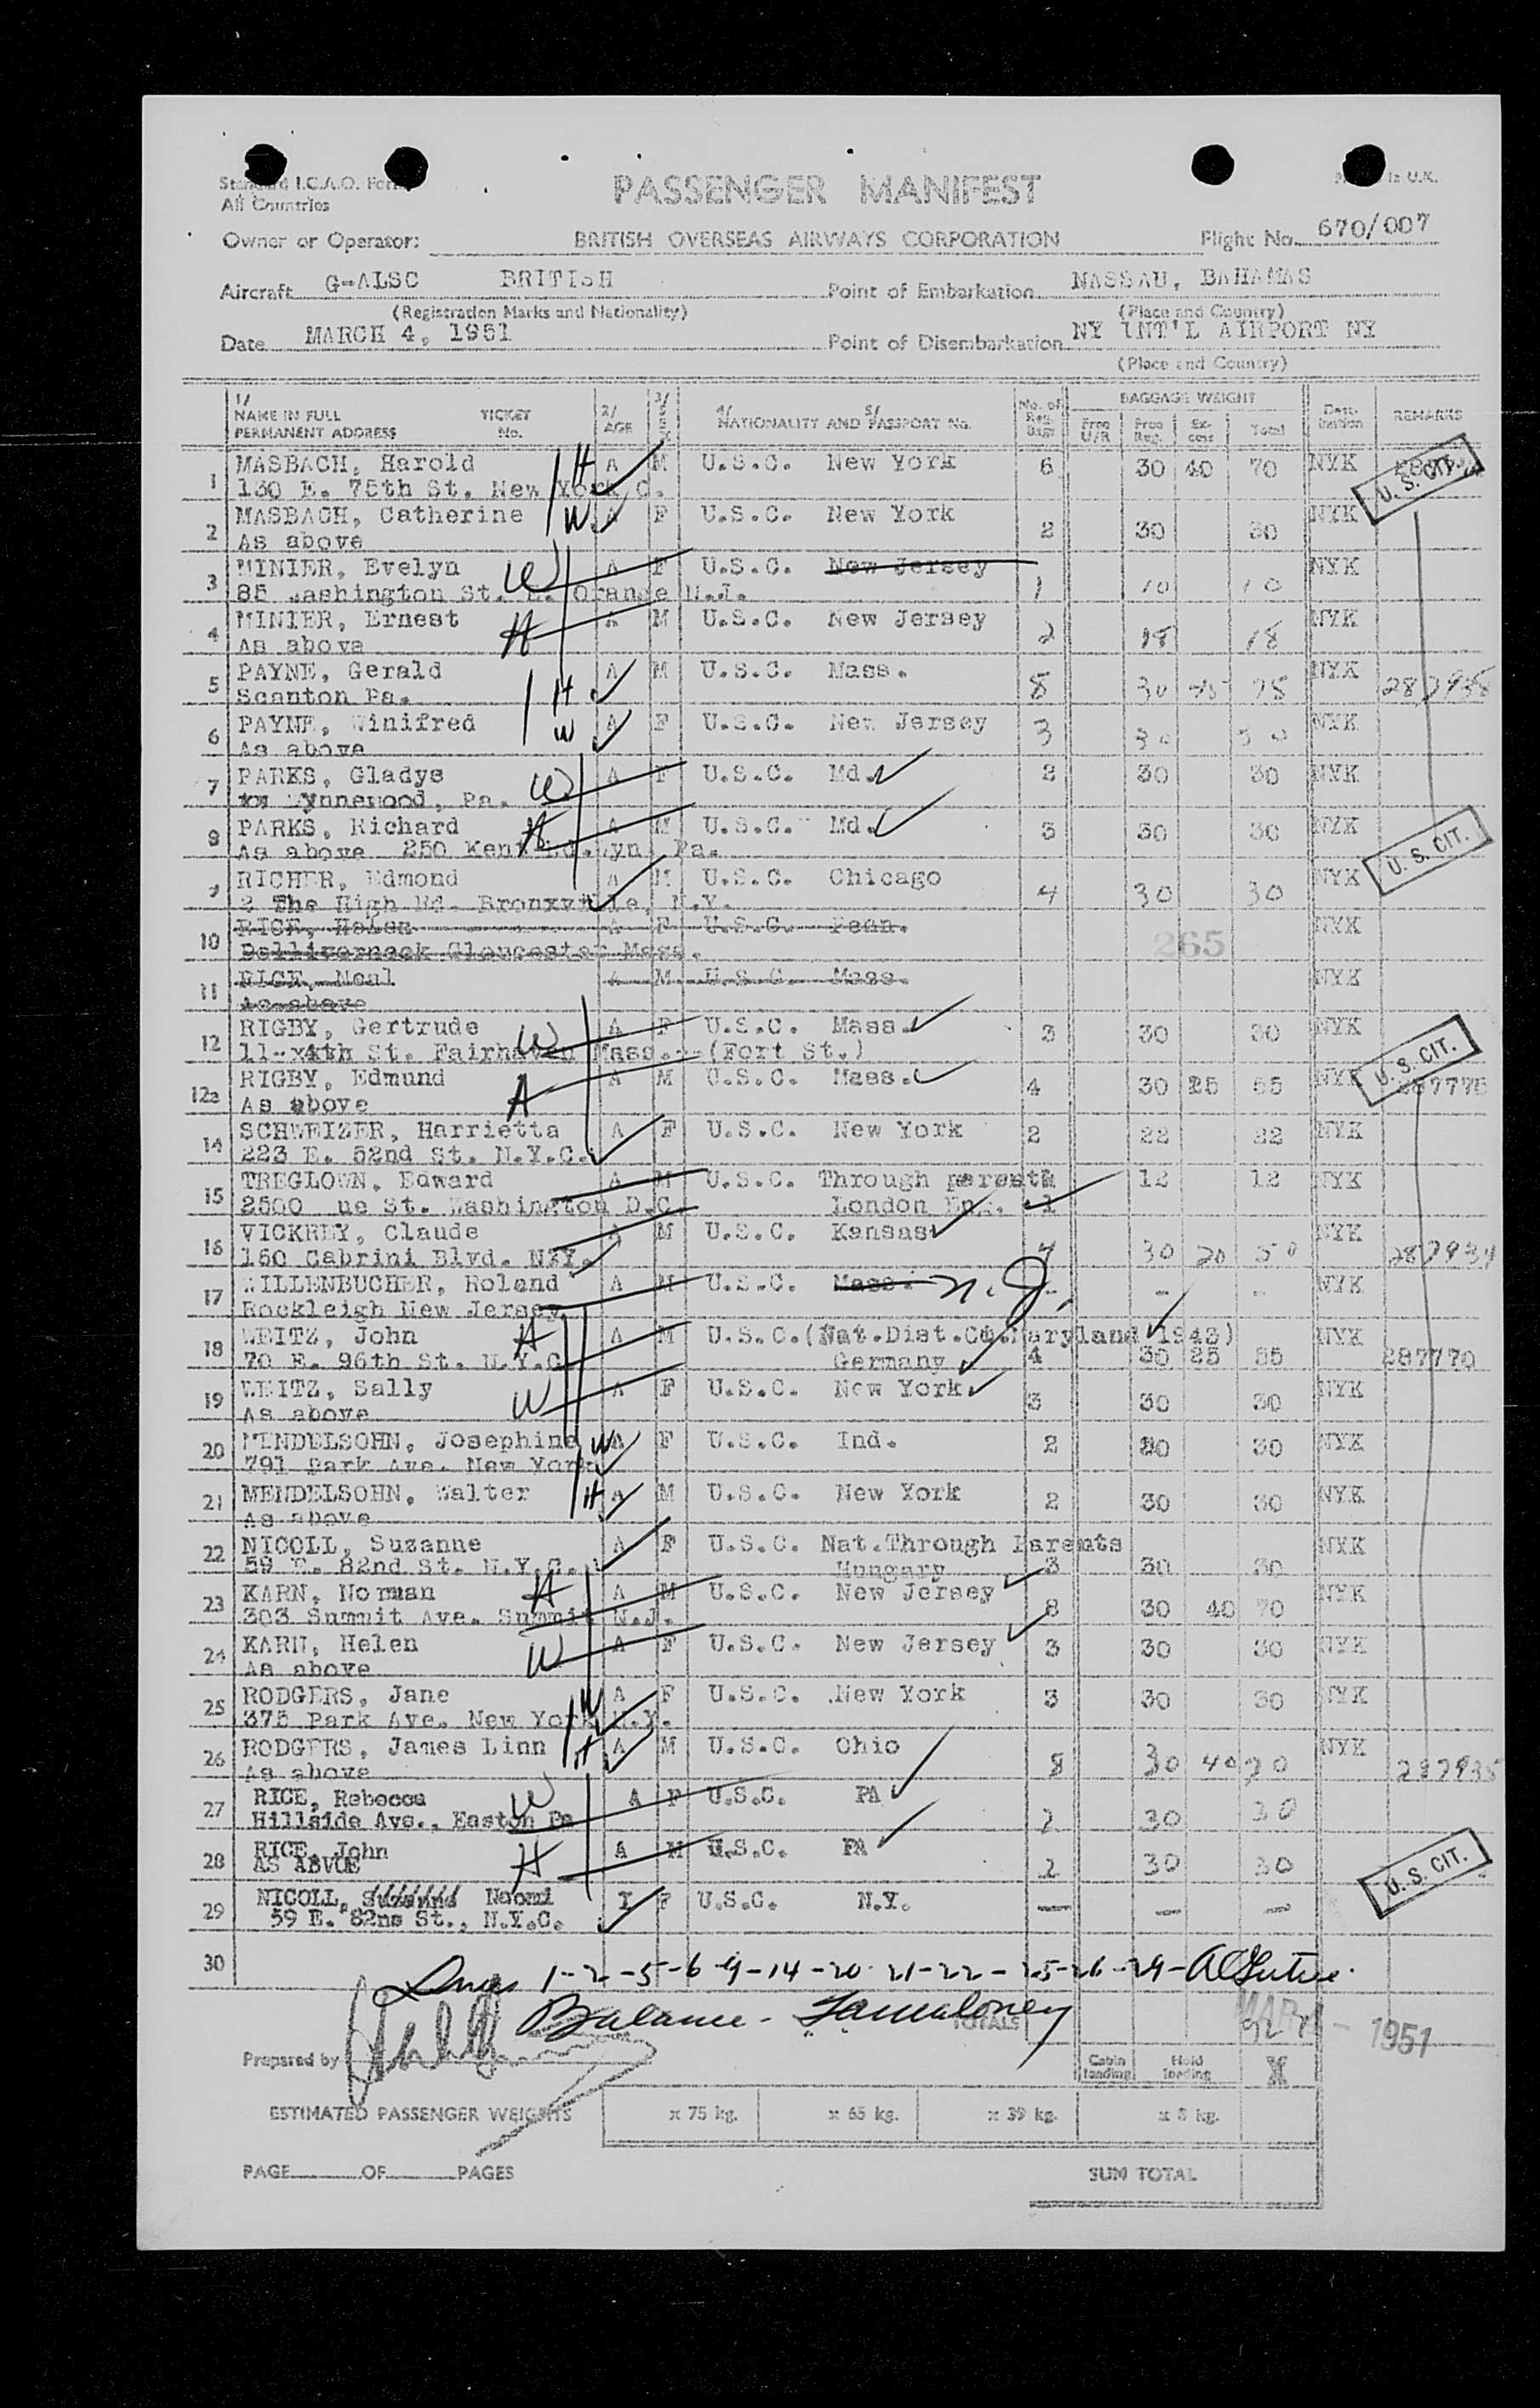 Standard I.C.A.O. Form
All Countries
PASSENGER MANIFEST
in U.K.
Owner or Operator: BRITISH OVERSEAS AIRWAYS CORPORATION Flight No. 670/007
Aircraft G-ALSC BRITISH Point of Embarkation NASSAU, BAHAMAS
(Registration Marks and Nationality) (Place and Country)
Date MARCH 4, 1951 Point of Disembarkation NY INT'L AIRPORT NY
(Place and Country)
1/ NAME IN FULL PERMANENT ADDRESS TICKET No. 2/ AGE 3/ SEX 4/ 5/ NATIONALITY AND PASSPORT No. No. of Reg. Bags BAGGAGE WEIGHT Free U/R Free Reg. Excess Total Destination REMARKS
1 MASBACH, Harold H A M U.S.C. New York 6 30 40 70 NYK
130 E. 75th St. New York C.
U. S. CIT.
2 MASBACH, Catherine W A F U.S.C. New York 2 30 30 NYK
As above
3 MINIER, Evelyn W A F U.S.C. New Jersey 1 10 10 NYK
85 Washington St. E. Orange N.J.
4 MINIER, Ernest H A M U.S.C. New Jersey 2 18 18 NYK
As above
5 PAYNE, Gerald H A M U.S.C. Mass. 8 30 NYK
Scanton Pa.
6 PAYNE, Winifred W A F U.S.C. New Jersey 3 30 30 NYK
As above
7 PARKS, Gladys W A F U.S.C. Md. 2 30 30 NYK
Wynnewood, Pa.
8 PARKS, Richard H A M U.S.C. Md. 3 30 30 NYK
As above 250 Kent Rd. Wyn. Pa.
U. S. CIT.
9 RICHER, Edmond A M U.S.C. Chicago 4 30 30 NYK
2 The High Rd. Bronxville, N.Y.
10 RICE, Helen A F U.S.C. Penn. NYK
Dolliverneck Gloucester Mass.
265
11 RICE, Neal A M U.S.C. Mass. NYK
As above
12 RIGBY, Gertrude W A F U.S.C. Mass. 3 30 30 NYK
11-x4th St. Fairhaven Mass.--(Fort St.)
U. S. CIT.
12a RIGBY, Edmund H A M U.S.C. Mass. 4 30 25 55 NYK
As above
14 SCHWEIZER, Harrietta A F U.S.C. New York 2 22 22 NYK
223 E. 52nd St. N.Y.C.
15 TREGLOWN, Edward A M U.S.C. Through parents 12 12 NYK
2500 Que St. Washington D.C. London Eng. 1
16 VICKREY, Claude A M U.S.C. Kansas 4 30 20 50 NYK 287934
160 Cabrini Blvd. N.Y.
17 WILLENBUCHER, Roland A M U.S.C. Mass. N.J. - - - NYK
Rockleigh New Jersey
18 WEITZ, John H A M U.S.C.(Nat.Dist.Ct.Maryland 1943) NYK
70 E. 96th St. N.Y.C. Germany 4 30 25 55 287770
19 WEITZ, Sally W A F U.S.C. New York 3 30 30 NYK
As above
20 MENDELSOHN, Josephine W A F U.S.C. Ind. 2 30 30 NYK
791 Park Ave. New York
21 MENDELSOHN, Walter H A M U.S.C. New York 2 30 30 NYK
As above
22 NICOLL, Suzanne A F U.S.C. Nat.Through Parents NYK
59 E. 82nd St. N.Y.C. Hungary 3 30 30
23 KARN, Norman H A M U.S.C. New Jersey 8 30 40 70 NYK
303 Summit Ave. Summit N.J.
24 KARN, Helen W A F U.S.C. New Jersey 3 30 30 NYK
As above
25 RODGERS, Jane W A F U.S.C. New York 3 30 30 NYK
375 Park Ave. New York N.Y.
26 RODGERS, James Linn H A M U.S.C. Ohio 8 30 40 70 NYK 287935
As above
27 RICE, Rebecca W A F U.S.C. PA 2 30 30
Hillside Ave., Easton Pa
28 RICE, John H A M U.S.C. PA 2 30 30
AS ABVOE
U. S. CIT.
29 NICOLL, Suzanne Naomi I F U.S.C. N.Y. - - -
59 E. 82nd St., N.Y.C.
30
1-2-5-6-9-14-20-21-22-25-26-29-
Balance -
TOTALS
MAR 4 - 1951
Prepared by
Cabin loading Hold loading X
ESTIMATED PASSENGER WEIGHTS x 75 kg. x 65 kg. x 39 kg. x 8 kg.
PAGE OF PAGES SUM TOTAL